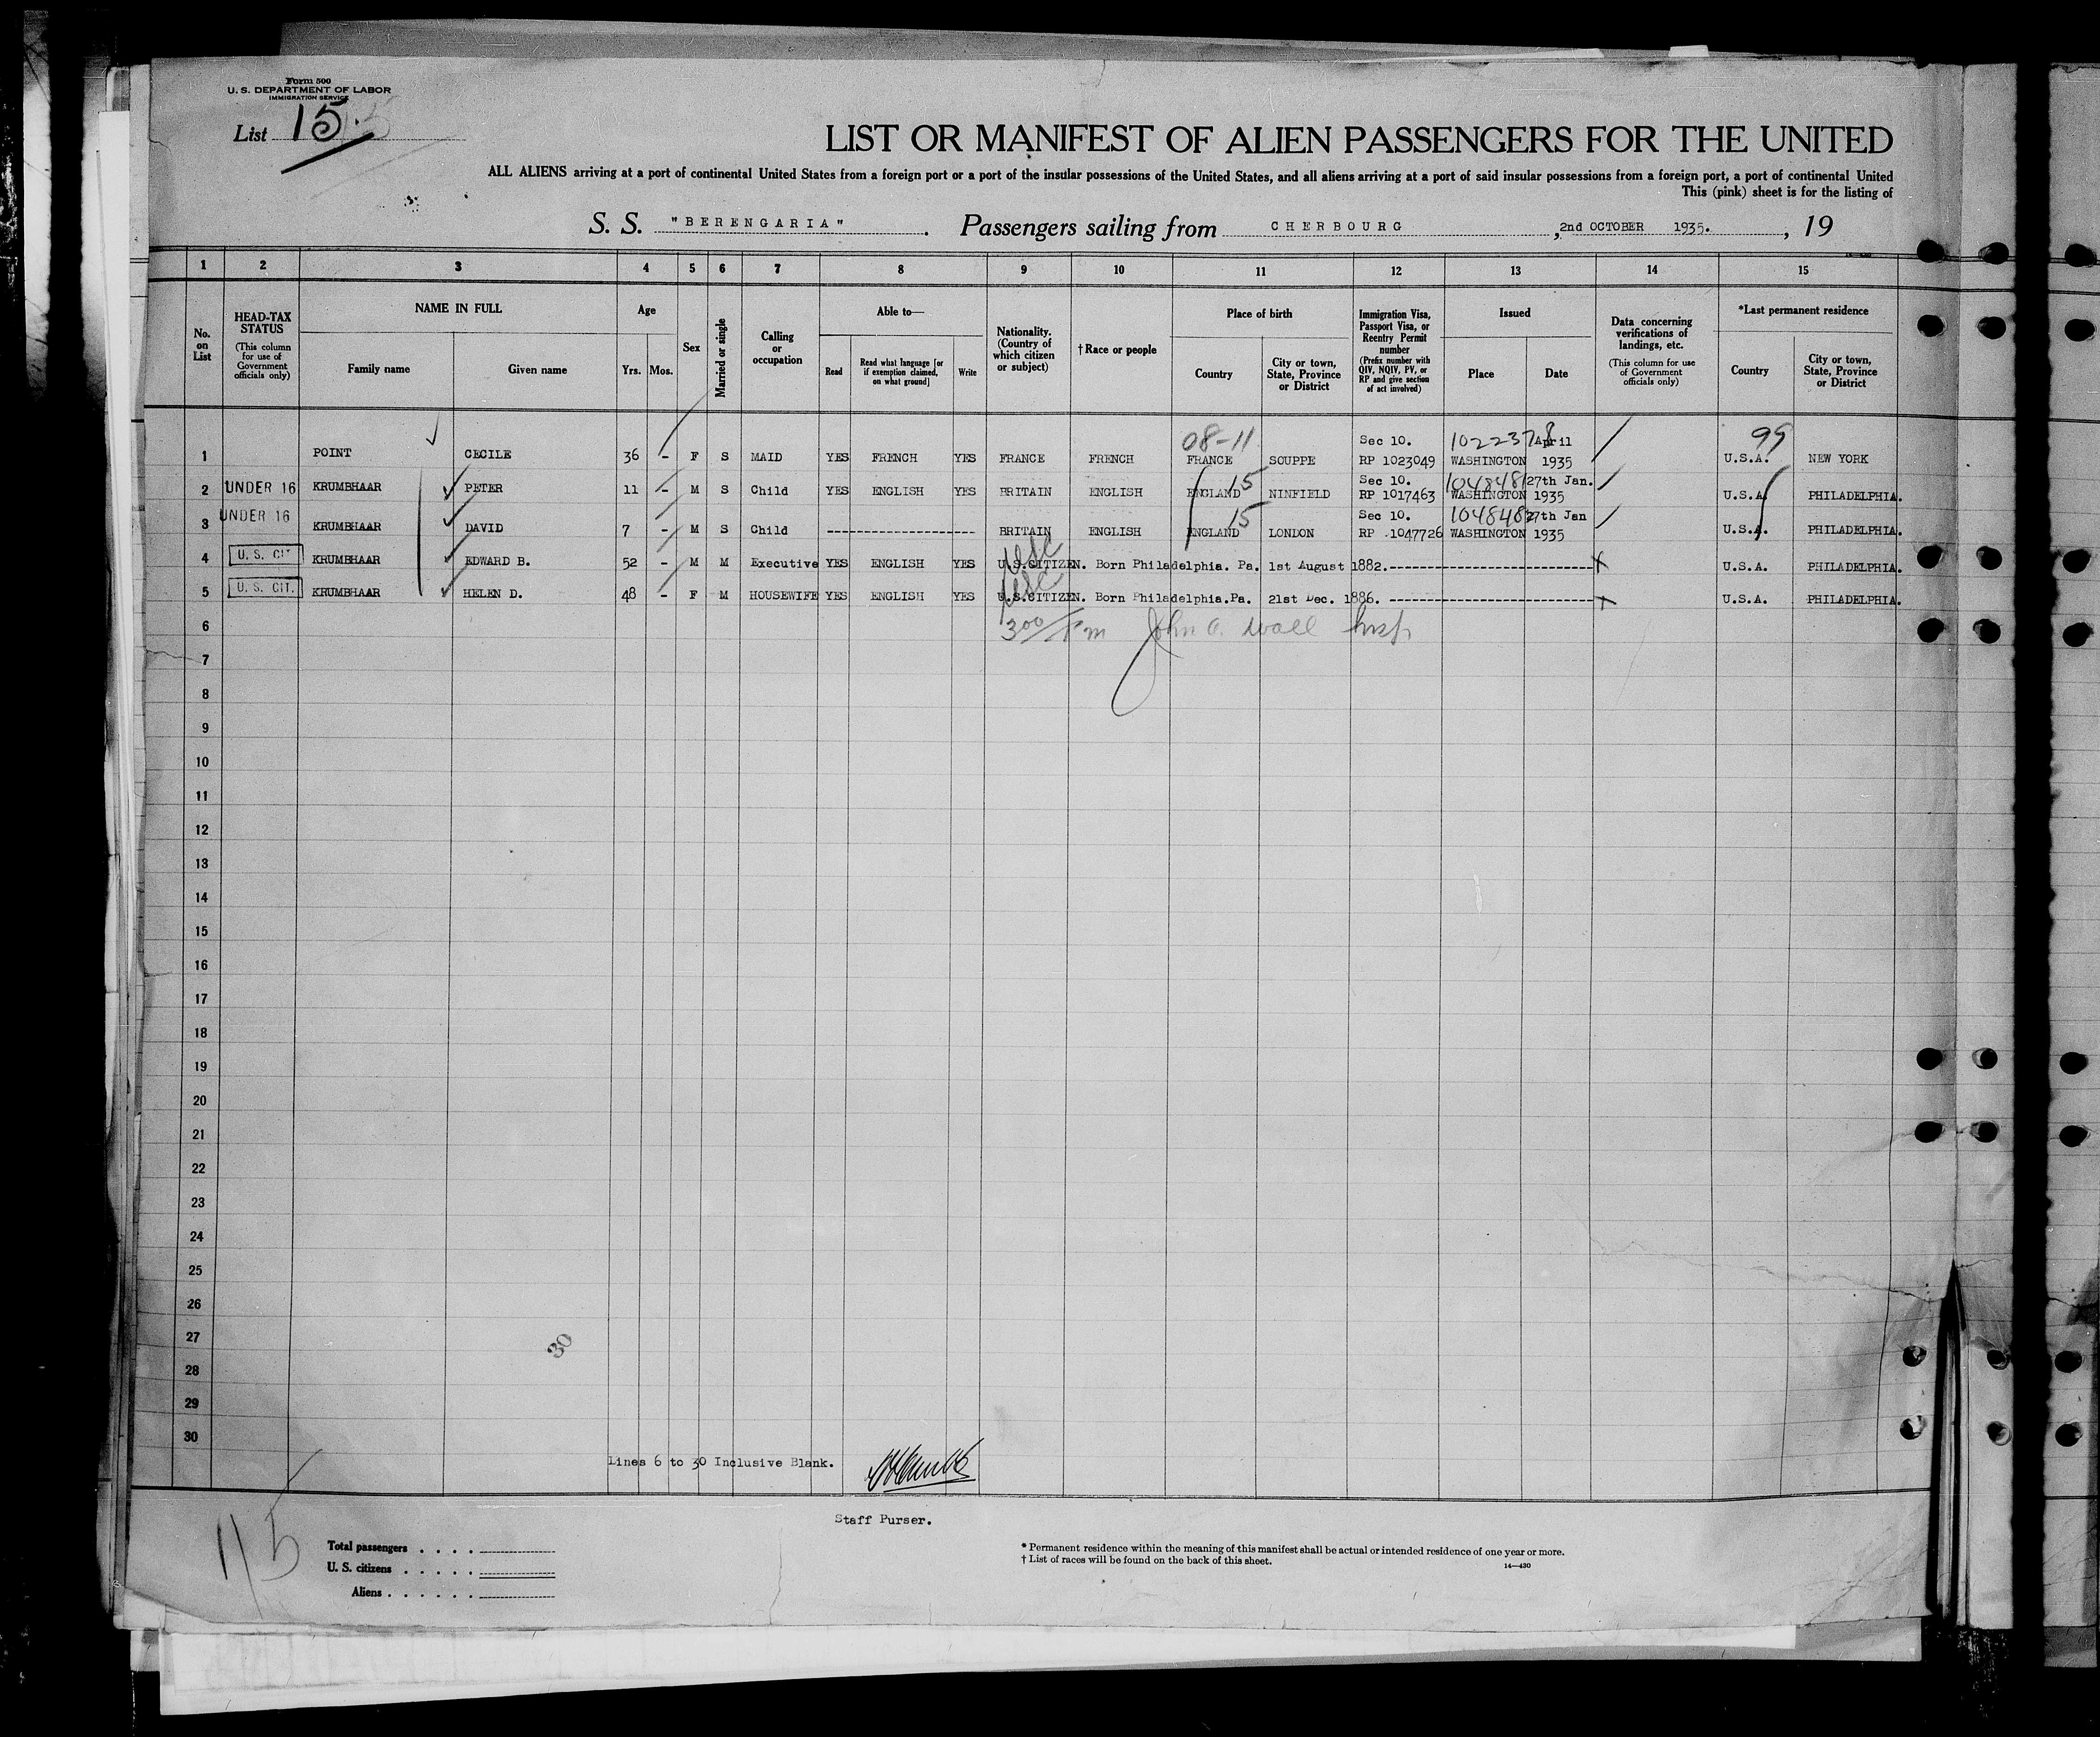 Form 500
U. S. DEPARTMENT OF LABOR
IMMIGRATION SERVICE
List 15.
LIST OR MANIFEST OF ALIEN PASSENGERS FOR THE UNITED
ALL ALIENS arriving at a port of continental United States from a foreign port or a port of the insular possessions of the United States, and all aliens arriving at a port of said insular possessions from a foreign port, a port of continental United
This (pink) sheet is for the listing of
S. S. "BERENGARIA". Passengers sailing from CHERBOURG, 2nd OCTOBER 1935., 19
1 2 3 4 5 6 7 8 9 10 11 12 13 14 15
No. on List
HEAD-TAX STATUS (This column for use of Government officials only)
NAME IN FULL
Family name
Given name
Age
Yrs. Mos.
Sex
Married or single
Calling or occupation
Able to—
Read
Read what language [or if exemption claimed, on what ground]
Write
Nationality. (Country of which citizen or subject)
†Race or people
Place of birth
Country
City or town, State, Province or District
Immigration Visa, Passport Visa, or Reentry Permit number (Prefix number with QIV, NQIV, PV, or RP and give section of act involved)
Issued
Place
Date
Data concerning verifications of landings, etc. (This column for use of Government officials only)
*Last permanent residence
Country
City or town, State, Province or District
08-11 Sec 10. 102237 April 99
1 POINT CECILE 36 - F S MAID YES FRENCH YES FRANCE FRENCH FRANCE SOUPPE RP 1023049 WASHINGTON 1935 U.S.A. NEW YORK
15 Sec 10. 104848 27th Jan.
2 UNDER 16 KRUMBHAAR PETER 11 - M S Child YES ENGLISH YES BRITAIN ENGLISH ENGLAND NINFIELD RP 1017463 WASHINGTON 1935 U.S.A PHILADELPHIA.
15 Sec 10. 104848 27th Jan
3 UNDER 16 KRUMBHAAR DAVID 7 - M S Child -------------------- BRITAIN ENGLISH ENGLAND LONDON RP 1047726 WASHINGTON 1935 U.S.A. PHILADELPHIA.
4 U. S. CIT KRUMBHAAR EDWARD B. 52 - M M Executive YES ENGLISH YES U.S.CITIZEN. Born Philadelphia. Pa. 1st August 1882.---------------------------- U.S.A. PHILADELPHIA.
5 U. S. CIT. KRUMBHAAR HELEN D. 48 - F M HOUSEWIFE YES ENGLISH YES U.S.CITIZEN. Born Philadelphia.Pa. 21st Dec. 1886. ---------------------------- U.S.A. PHILADELPHIA.
6 300 Pm John A. Wall Insp
7
8
9
10
11
12
13
14
15
16
17
18
19
20
21
22
23
24
25
26
27
30
28
29
30
Lines 6 to 30 Inclusive Blank.
Staff Purser.
1/5
Total passengers . . . .
U. S. citizens . . . . .
Aliens . . . . . .
* Permanent residence within the meaning of this manifest shall be actual or intended residence of one year or more.
† List of races will be found on the back of this sheet.
14—430